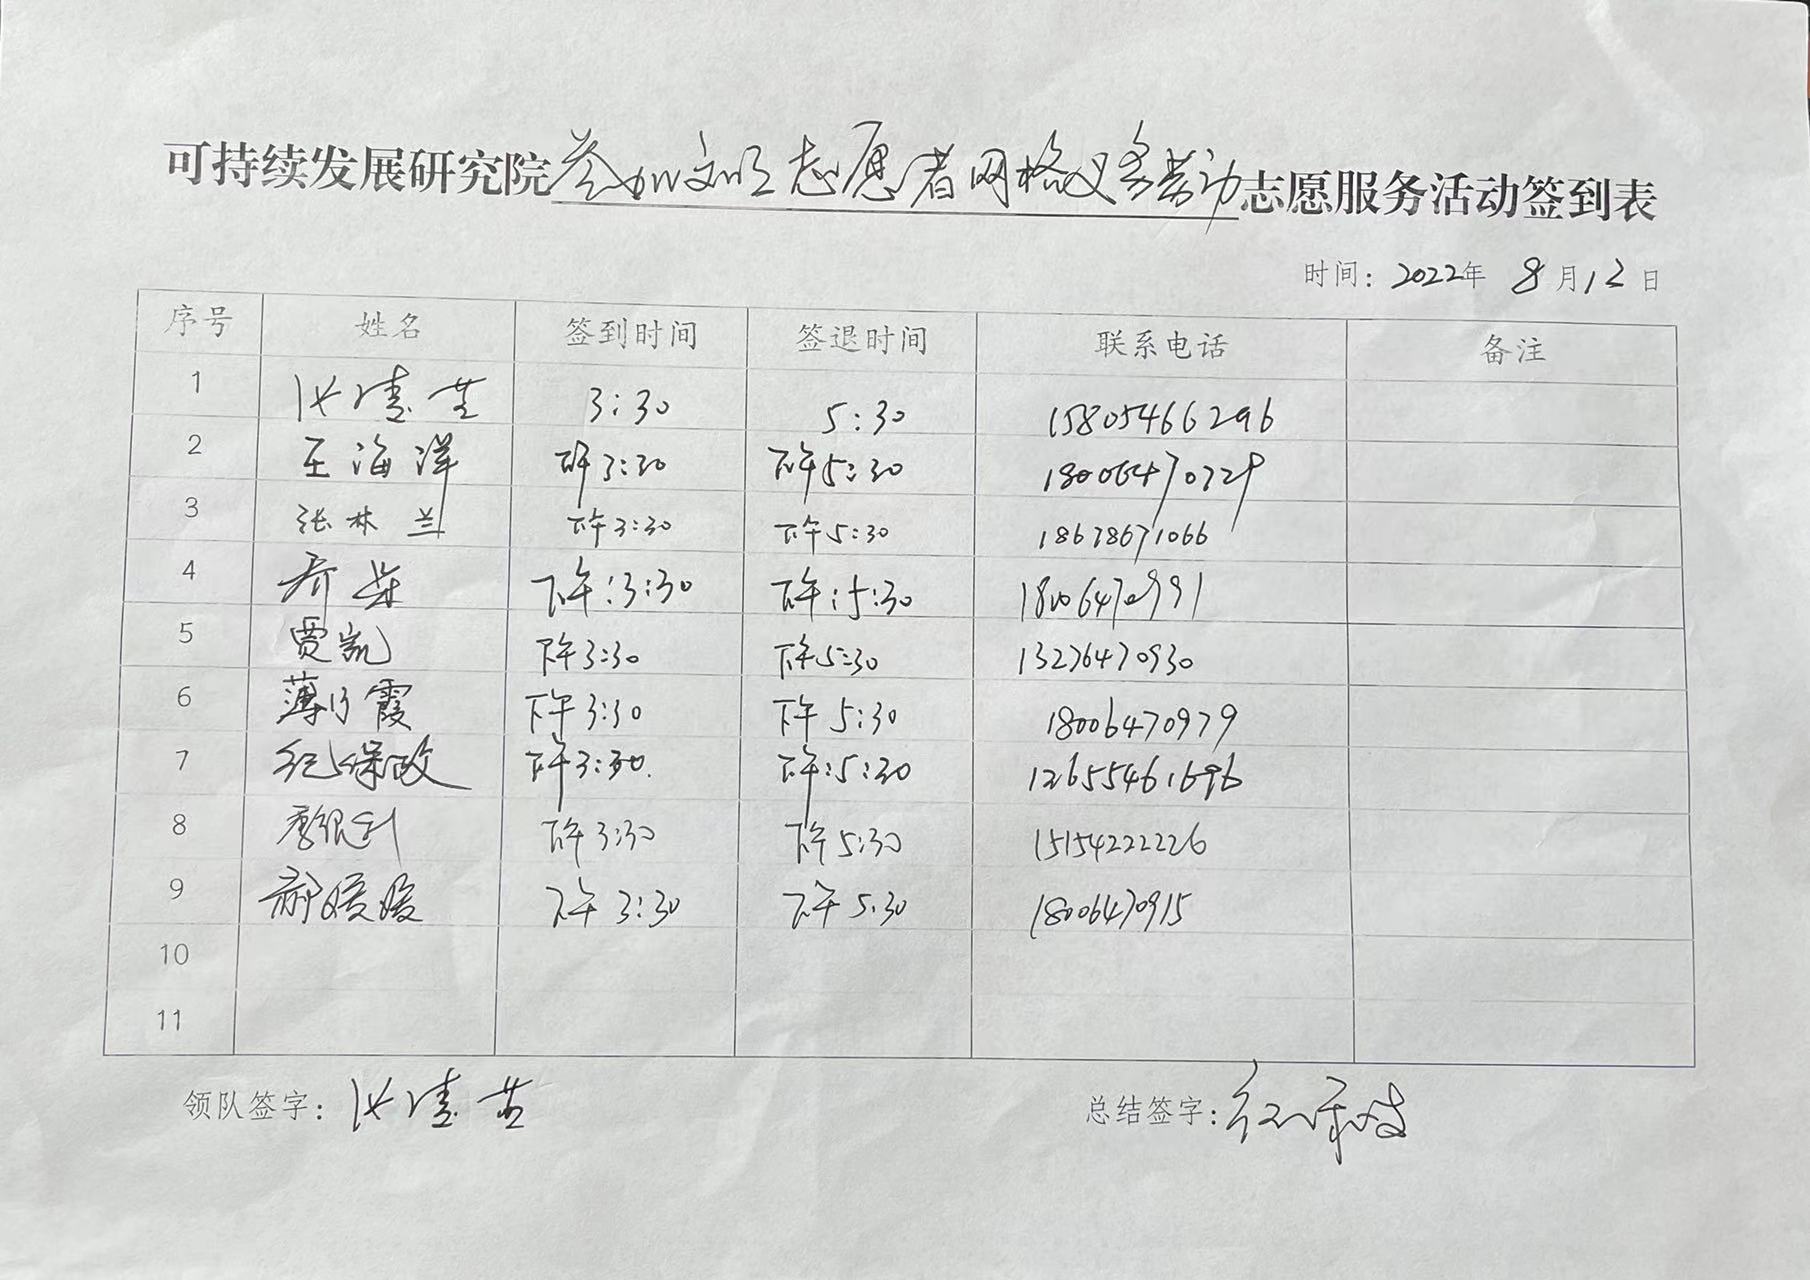 可持续发展研究院参加文明志愿者网格义务劳动志愿服务活动签到表
时间：2022年 8月12日
序号 姓名 签到时间 签退时间 联系电话 备注
1 3:30 5:30 15805466296
2 王海洋 下午3:30 下午5:30 18006470729
3 张林兰 下午3:30 下午5:30 18678671066
4 乔 下午:3:30 下午:5:30 18006470991
5 贾凯 下午3:30 下午5:30 13276470930
6 薄 霞 下午3:30 下午5:30 18006470979
7 纪保政 下午3:30. 下午:5:30
8 下午3:30 下午5:30 15154222226
9 郝媛媛 下午3:30 下午5:30 18006470915
10
11
领队签字： 总结签字：